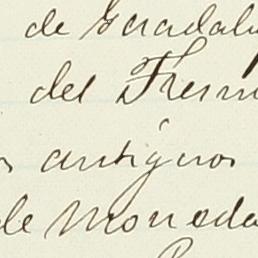 de Guadalu
del Fresn
s antiguos
de Moneda